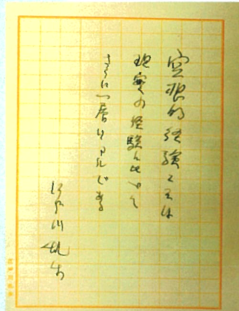 空想的経験こそは
現実の経験に比して
さらに一層リアルである
江戸川乱歩